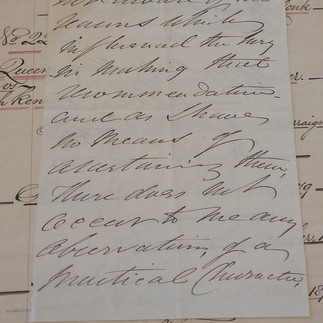 not aware of the
reasons which
influenced the Jury
in making that
recommendation
and as I have
no means of
ascertaining them,
there does not
occur to me any
observation, of a
practical Character,
No 22
Queen
vs